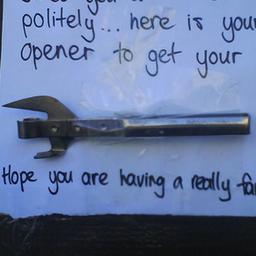 politely... here is your
opener to get your
Hope you are having a really